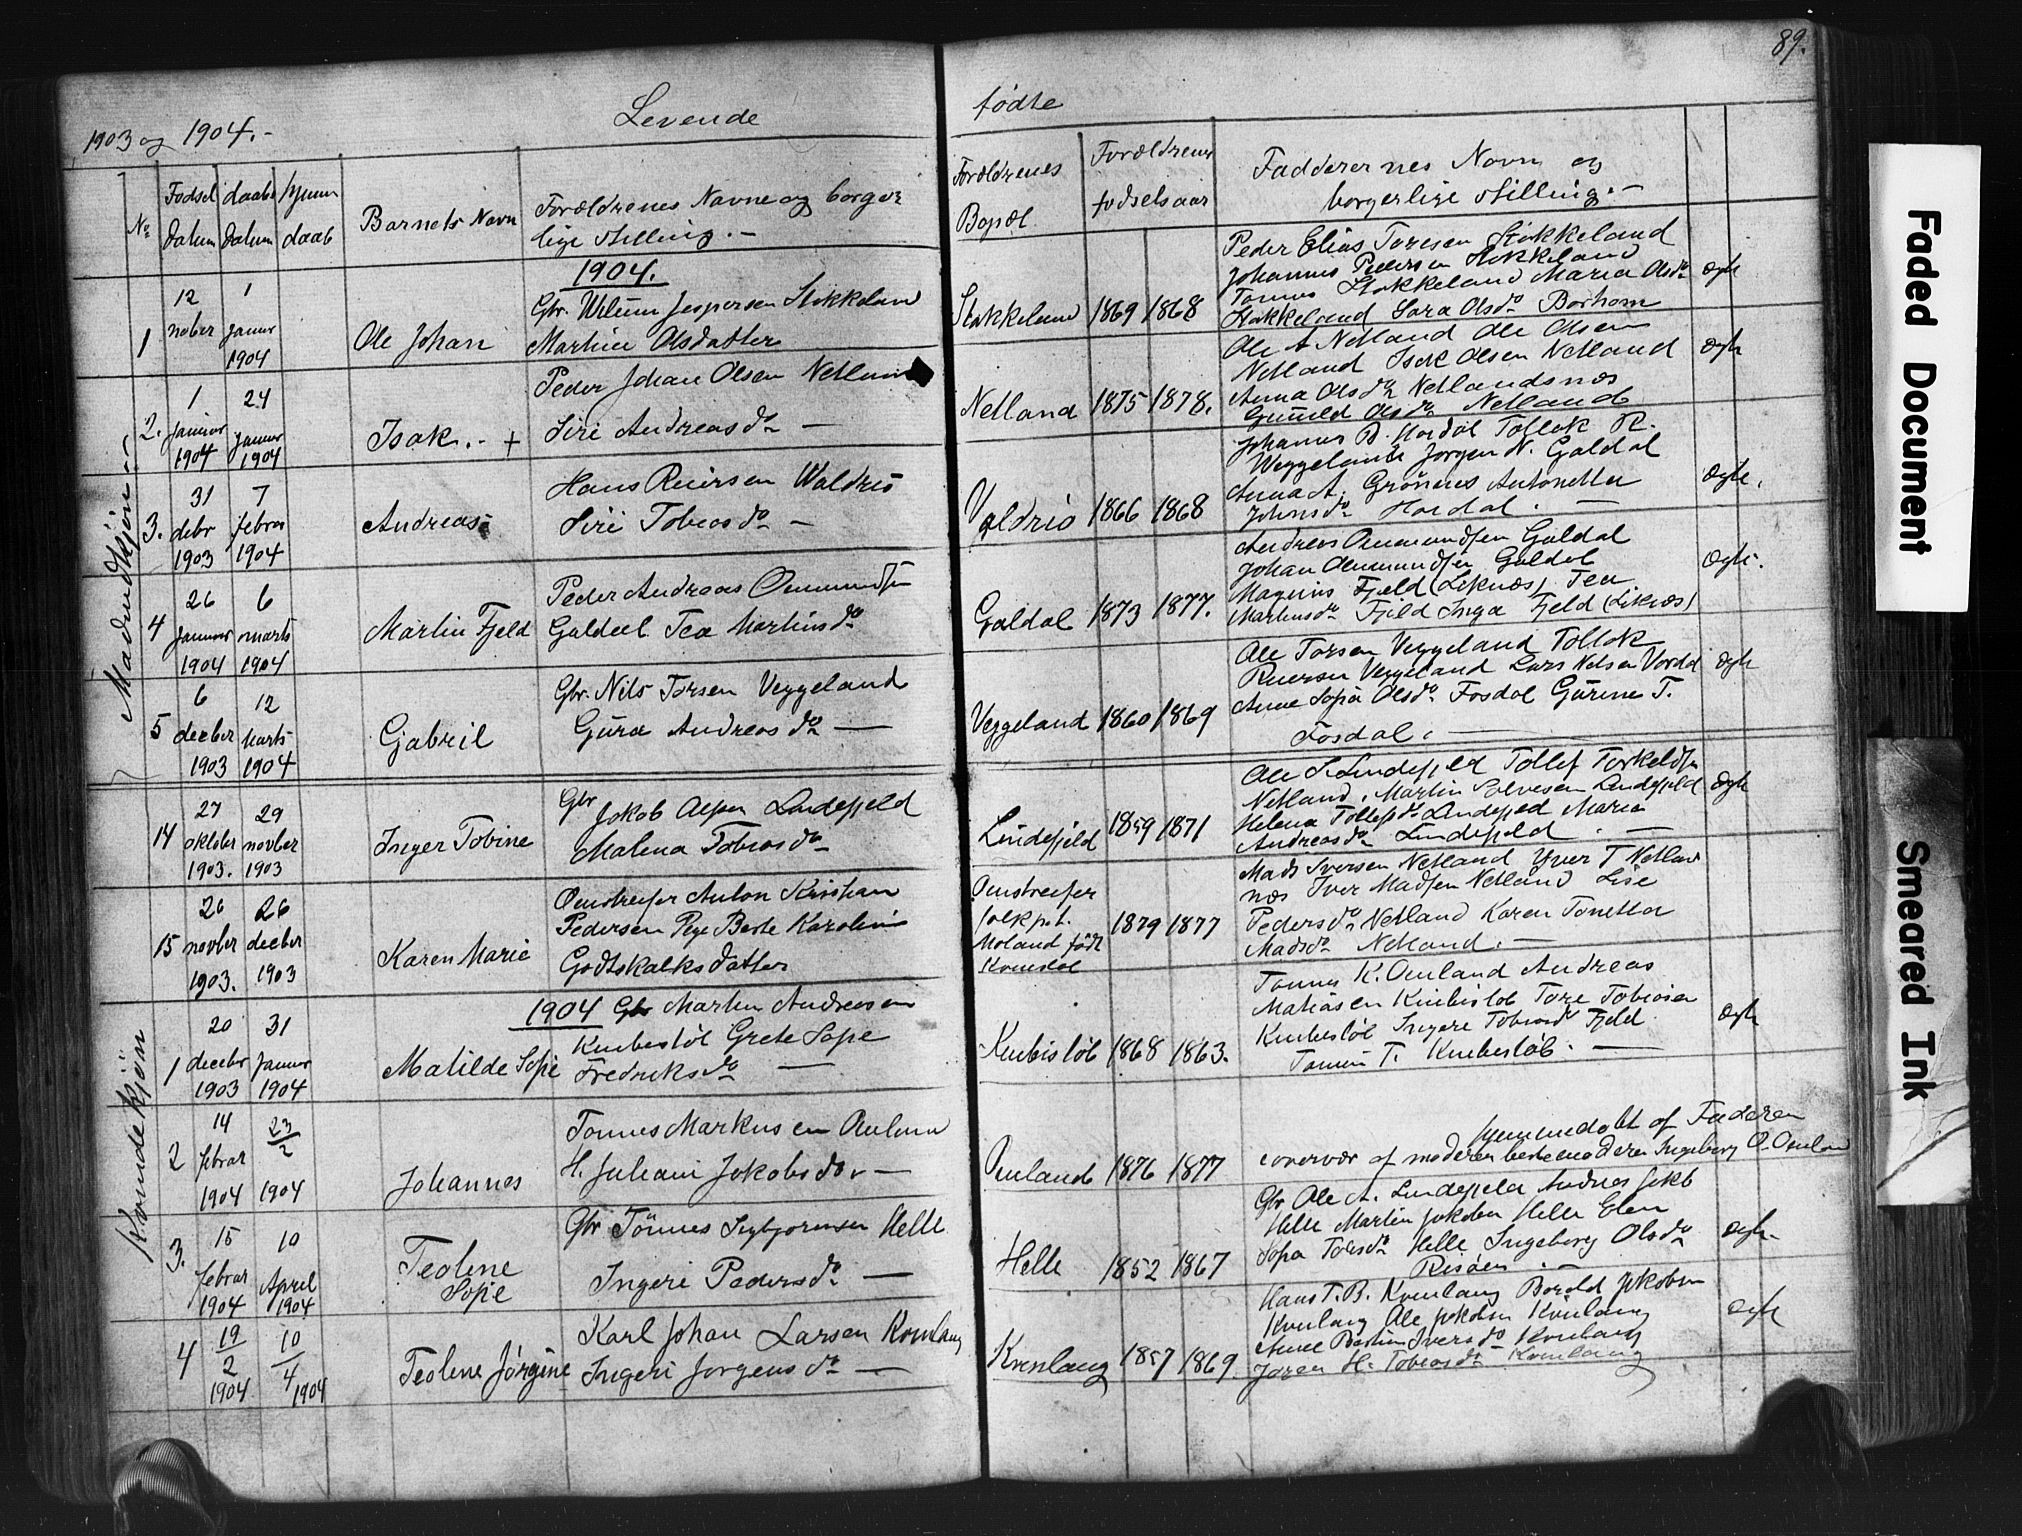 89.
1903 og 1904.-
Levende
fødte
No
Fødsel Datum
daabs Datum
hjemmedaab
Barnets Navn
Forældrenes Navne og borger
lige stilling.-
Forældrenes
Bopæl
Forældrenes
fødselsaar
Faddernes Navn og
borgerlige stilling.-
Madendskjön
1904.
1
12 nober
1 januar 1904
Ole Johan
Gbr. Wilum Jespersen Stokkeland
Martine Olsdatter
Stokkeland
1869 1868
Peder Elias Toresen Stokkeland
Johannes Pedersen Stokkeland
Tønnes Stokkeland Maria Olsdr
Stokkeland Sara Olsdr Borhom
Ægte
2.
1 januar 1904
24 januar 1904
Isak.- +
Peder Johan Olsen Netland
Siri Andreasdr —
Netland
1875 1878.
Ole A Netland Ole Olsen
Netland Isak Olsen Netland
Anna Olsdr Netlandsnæs
Gunild Olsdr Netland
Ægte
3.
31 debr 1903
7 febrar 1904
Andreas
Hans Reiersen Waldrio
Siri Tobiasdr —
Valdrio
1866 1868
Johannes B. Hordal Tollok R.
Weggelande Jorgen N. Galdal
Anna A. Grönnes Antonetta
Johnsdr Hordal. —
Ægte.
4
26 januar 1904
6 marts 1904
Martin Fjeld
Peder Andreas Ommundsen
Galdal Tea Martinsdr
Galdal
1873 1877.
Andreas Ommundsen Galdal
Johan Ommundsen Galdal
Magnus Fjeld (Liknæs) Tea
Martinsdr Fjeld Inga Fjeld (Liknæs)
Ægte.
5
6 decber 1903
12 Marts 1904
Gabriel
Gbr. Nils Torsen Veggeland
Gura Andreasdr —
Veggeland
1860 1869
Ole Torsen Veggeland Tollok
Reiersen Veggeland Lars Nelsen Vordal
Anne Sofia Olsdr. Fosdal Gurine T.
Fosdal. —
Ægte
14
27 oktober 1903.
29 novber 1903
Inger Tobine
Gbr
Jakob Olsen Lindefjeld
Malena Tobiasdr
Lindefjeld
1859 1871
Ole S. Lindefjeld Tollef Torkeldsen
Netland. Martin Salvesen Lindefjeld
Helena Tollefsdr Lindefjeld Maria
Andreasdr Lindefjeld. —
Ægte
15
26 novber 1903.
26 decber 1903
Karen Marie
Omstreifer Anton Kristian
Pedersen Pige Berte Karoline
Godtskalksdatter
Omstreifer
folk p.t.
Moland født
Kvinesdal
1879 1877
Mads Iversen Netland Yver T Netland
næs Iver Madsen Netland Lise
Pedersdr Netland Karen Tonetta
Madsdr Netland. —
Kvindekjön
1904
1
20 decebr 1903
31 Januar 1904
Matilde Sofie
Gbr Martin Andreasen
Knibesløl Grete Sofie
Fredriksdr —
Knibisløl
1868 1863.
Tønnes K. Omland Andreas
Matiasen Knibesløl Tore Tobiasen
Knibesløl Ingere Tobiasdr Fjeld
Tomine T. Knibesløl. —
Ægte
2
14 febrar 1904
23/2 1904
Johannes
Tonnes Markusen Omland
H. Juliani Jokobsdr —
Omland
1876 1877
hjemmedøbt af Faderen
overvær af moderen bestemoderen Ingeborg O. Omland
3.
15 febrar 1904
10 April 1904
Teoline Sofie
Gbr Tönnes Ingbjornsen Helle
Ingeri Pedersdr —
Helle
1852 1867
Gbr Ole A. Lindefjeld Andreas Jakb
Helle Martin Jakobsen Helle Elen
Sofia Torsdr Helle Ingeborg Olsdr
Risöen. —
Ægte.
4
19/2 1904
10/4 1904
Teoline Jörgine
Karl Johan Larsen Kvinlaug
Ingeri Jorgensdr —
Kvinlaug
1857 1869.
Hans T. B. Kvinlaug Borold Jokobsen
Kvinlaug Ole Jokobsen Kvinlaug
Anne Bertine Iversdr Kvinlaug
Joren H. Tobiasdr Kvinlaug
Ægte
Faded Document
Smeared Ink